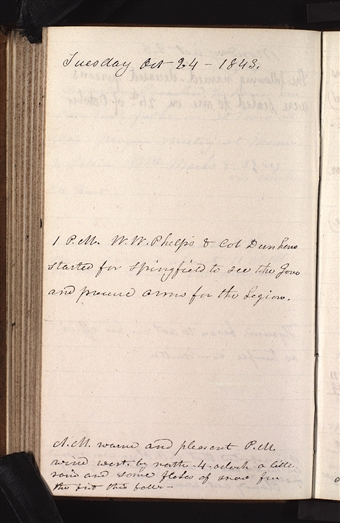 Tuesday Oct 24 - 1843,
1 P.M. W. W. Phelps & Col Dunham
started for Springfield to see the Gov
and procure arms for the Legion.
A.M. warm and pleasent P.M.
wind west. by north 4. oclock a little
rain and some flakes of snow
the first this fall -